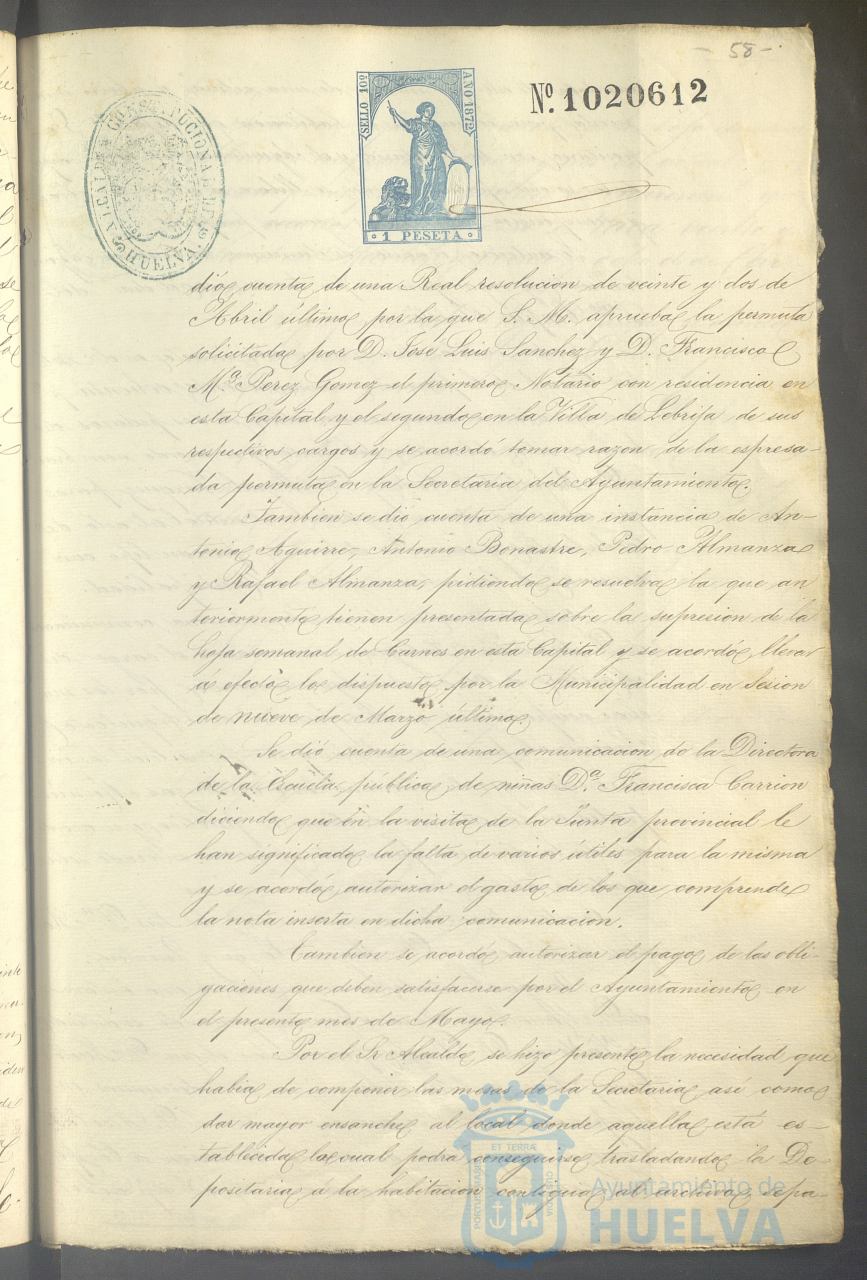 - 58 -
SELLO 10º
AÑO 1872
Nº. 1020612
ALCALDIA CONSTITUCIONAL DE HUELVA
1 PESETA
dió cuenta de una Real resolucion de veinte y dos de
Abril último por la que S. M. aprueba la permuta
solicitada por D. José Luis Sanchez y D. Francisco
Mª Perez Gomez el primero Notario con residencia en
esta Capital y el segundo en la Villa de Lebrija de sus
respectivos cargos y se acordó tomar razon de la espresa-
da permuta en la Secretaria del Ayuntamiento.
Tambien se dió cuenta de una instancia de An-
tonio Aguirre, Antonio Bonastre, Pedro Almanza
y Rafael Almanza, pidiendo se resuelva la que an
teriormente tienen presentada sobre la supresion de la
hoja semanal de Carnes en esta Capital y se acordó llevar
a efecto lo dispuesto por la Municipalidad en Sesion
de nueve de Marzo último.
Se dió cuenta de una comunicacion de la Directora
de la Escuela pública de niñas Dª. Francisca Carrion
diciendo que en la visita de la Junta provincial le
han significado la falta de varios útiles para la misma
y se acordó autorizar el gasto de los que comprende
la nota inserta en dicha comunicacion.
Tambien se acordó autorizar el pago de las obli-
gaciones que deben satisfacerse por el Ayuntamiento en
el presente mes de Mayo.
Por el Sr Alcalde se hizo presente la necesidad que
habia de componer las mesas de la Secretaria asi como
dar mayor ensanche al local donde aquella está es-
tablecida lo cual podrá conseguirse trasladando la De-
positaria á la habitacion contigua al archivo, sepa-
ET TERRÆ
PORTUS MARIS
CUSTODIA
Ayuntamiento de
HUELVA